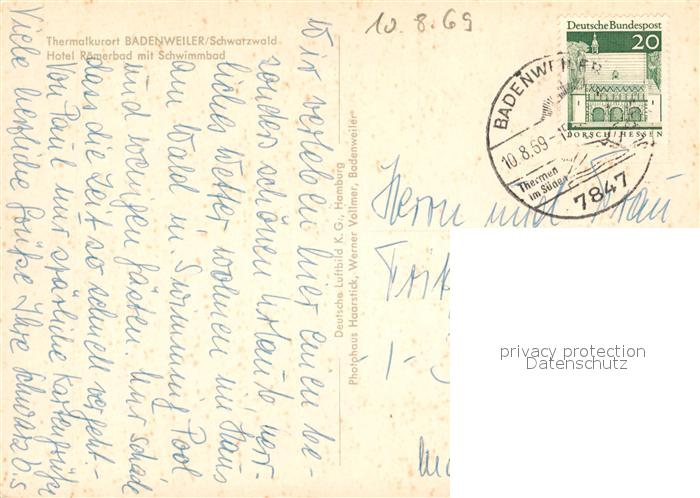 Thermalkurort BADENWEILER/Schwarzwald
Hotel Römerbad mit Schwimmbad
10. 8. 69
Deutsche Bundespost
20
LORSCH/HESSEN
BADENWEILER
10.8.69
Thermen
im Süden
7847
Wir verleben hier einen be-
sonders schönen Urlaub herr-
liches Wetter wohnen im Haus
am Wald m. Swimming Pool
und wenigen Gästen. Nur schade
dass die Zeit so schnell vergeht.-
Von Paul nur spärliche Kartengrüße
Viele herzliche Grüße Ihre
Deutsche Luftbild K. G., Hamburg
Photohaus Haarstick, Werner Vollmer, Badenweiler
Herrn und Frau
- 1 -
privacy protection
Datenschutz